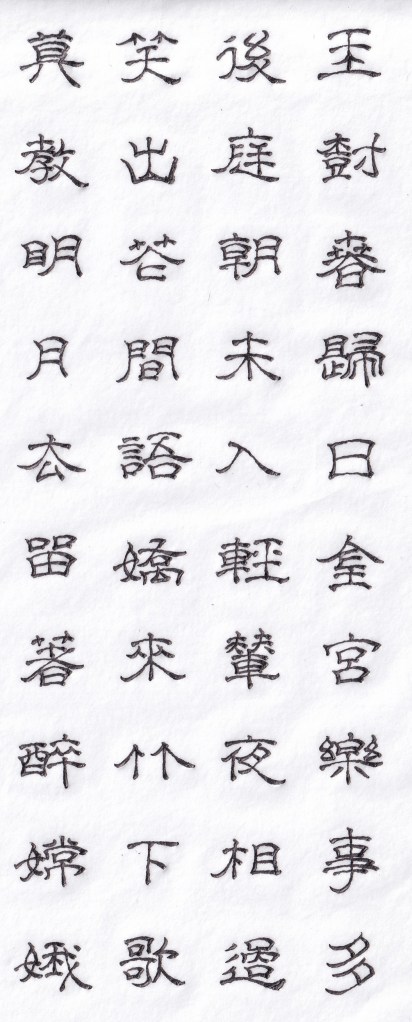 玉樹春歸日金宮樂事多
後庭朝未入輕輦夜相過
笑出花間語嬌來竹下歌
莫教明月去留著醉嫦娥